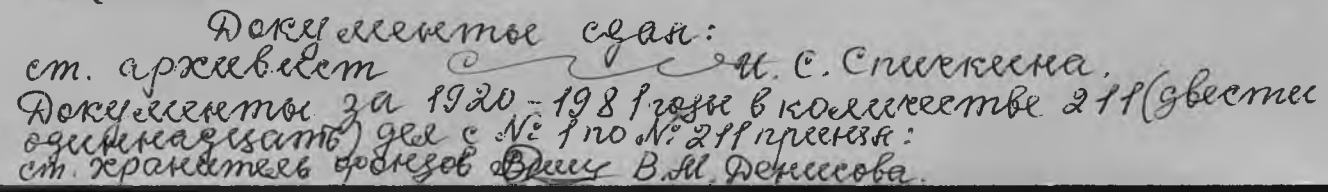 Документы сдал:
ст. архивист И. С. Спичкина.
Документы за 1920-1981 годы в количестве 211 (двести
одиннадцать) дел с № 1 по № 211 принял:
ст. хранитель фондов В. М. Денисова.